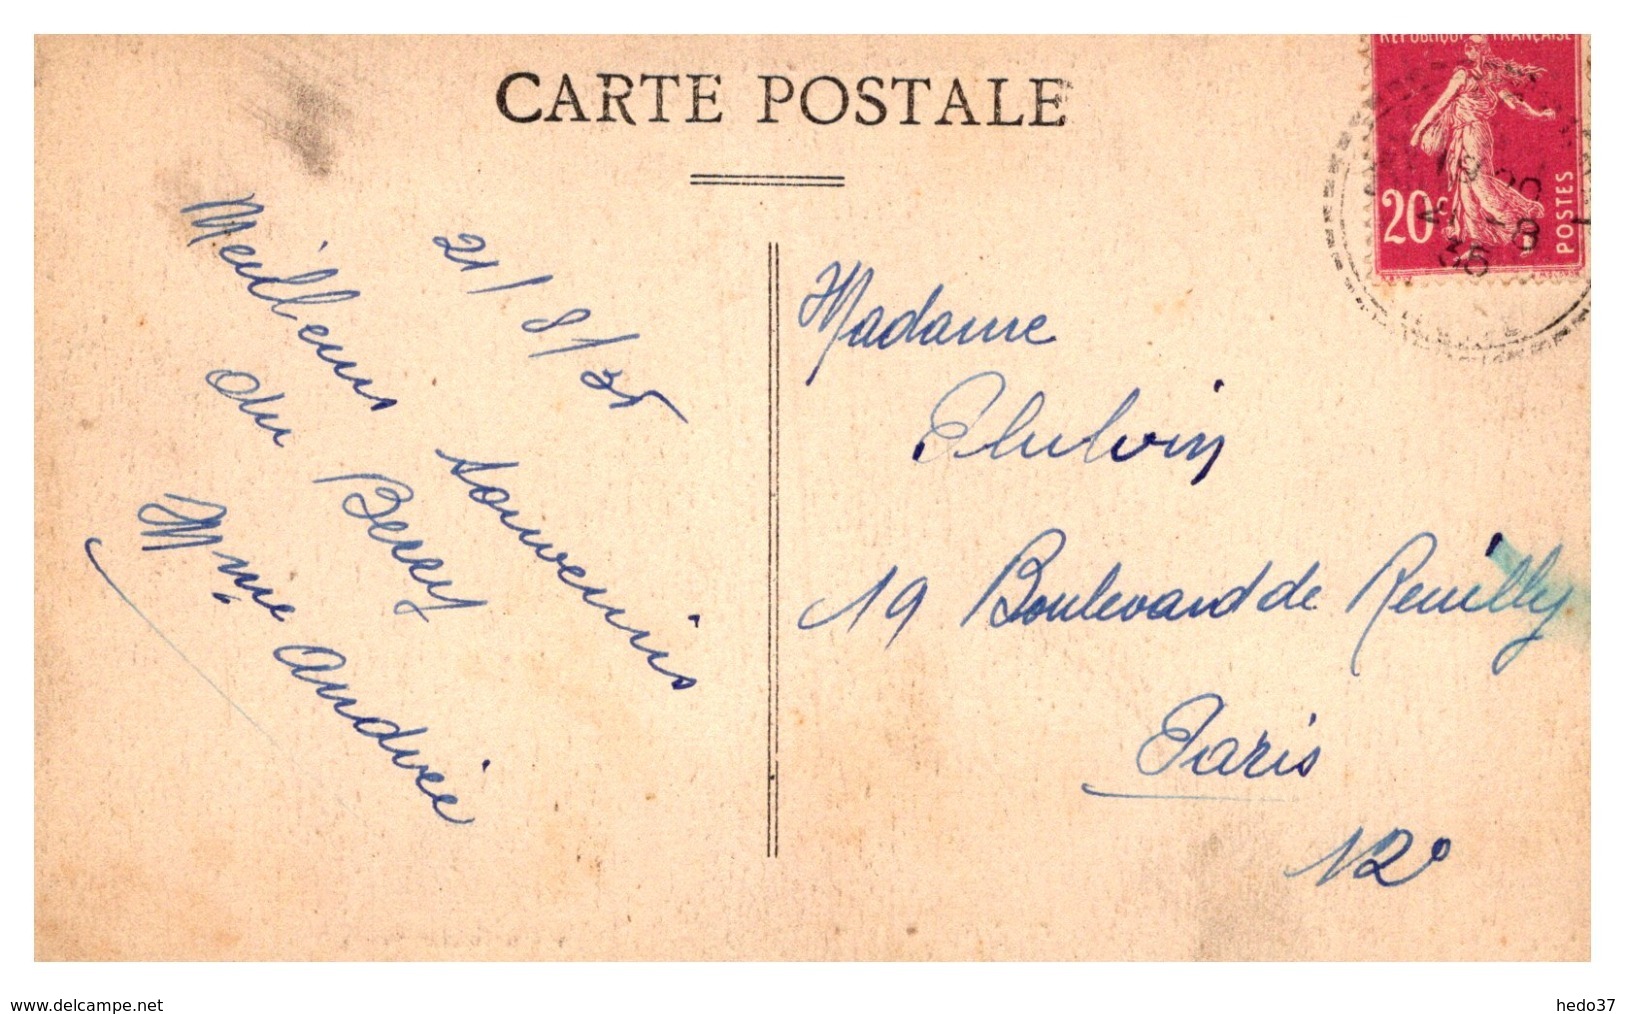 CARTE POSTALE
RÉPUBLIQUE FRANÇAISE
20c
POSTES
21-8
35
21/8/35
Meilleurs souvenirs
du Berry
Mme Andrée
Madame
19 Boulevard de Reuilly
Paris
12e
www.delcampe.net
hedo37